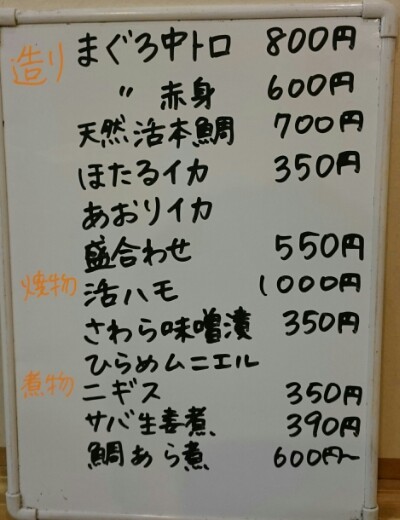 造り まぐろ中トロ 800円
〃 赤身 600円
天然活本鯛 700円
ほたるイカ 350円
あおりイカ
盛合わせ 550円
焼物 活ハモ 1000円
さわら味噌漬 350円
ひらめムニエル
煮物 ニギス 350円
サバ生姜煮 390円
鯛あら煮 600円〜